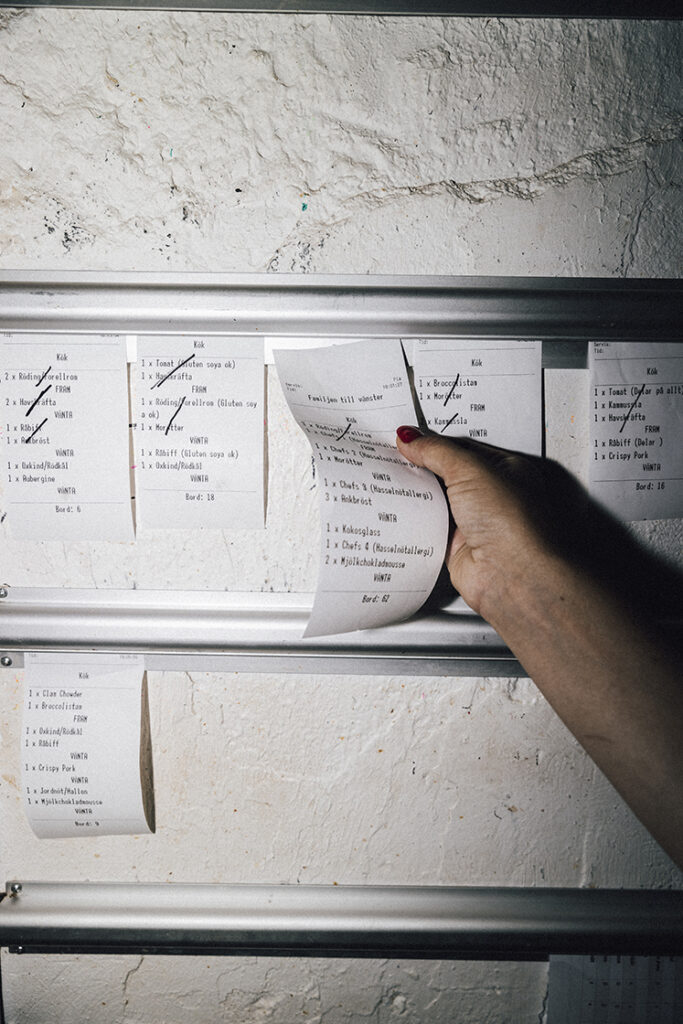 Kök
2 x Röding/Forellrom
2 x Havskräfta
VÄNTA
1 x Råbiff
1 x Ankbröst
VÄNTA
1 x Oxkind/Rödkål
1 x Aubergine
VÄNTA
Bord: 6
Kök
1 x Tomat (Gluten soya ok)
1 x Havskräfta
FRAM
1 x Röding/Forellrom (Gluten soy
a ok)
1 x Morötter
VÄNTA
1 x Råbiff (Gluten soya ok)
1 x Oxkind/Rödkål
VÄNTA
Bord: 18
Servir:
Tid:
Familjen till vänster
Kök
1 x Röding/Forellrom
1 x Chefs (Hasselnötallergi
FRAM
1 x Chefs 2 (Hasselnötallergi)
1 x Morötter
VÄNTA
1 x Chefs 3 (Hasselnötallergi)
3 x Ankbröst
VÄNTA
1 x Kokosglass
1 x Chefs 4 (Hasselnötallergi)
2 x Mjölkchokladmousse
VÄNTA
Bord: 62
Kök
1 x Broccolistam
1 x Morötter
FRAM
1 x Kammussla
VÄNTA
Tid:
Kök
1 x Tomat (Delar på allt)
1 x Kammussla
1 x Havskräfta
FRAM
1 x Råbiff (Delar )
1 x Crispy Pork
VÄNTA
Bord: 16
Kök
1 x Clam Chowder
1 x Broccolistam
FRAM
1 x Oxkind/Rödkål
1 x Råbiff
VÄNTA
1 x Crispy Pork
VÄNTA
1 x Jordnöt/Hallon
1 x Mjölkchokladmousse
VÄNTA
Bord: 9